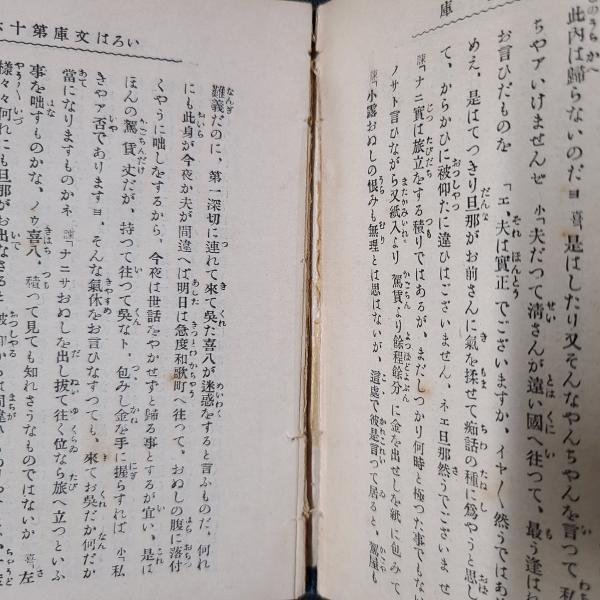 庫
此内は歸らないのだヨ 喜「是はしたり又そんなやんちやんを言つて私
ちやアいけませんゼ 小「夫だつて清さんが遠い國へ往つて、最う逢はれ
お言ひだものを 「エ、夫は實正でございますか、イヤ〳〵然うではあ
めえ、是はてつきり旦那がお前さんに氣を揉せて痴話の種に爲やうと思し
て、からかひに被仰たに違ひはございません、ネエ旦那然うでございませ
謙「ナニ實は旅立をする積りではあるが、まだしつかり何時と極つた事でもな
ノサト言ひながら又紙入より駕賃より餘程餘分に金を出せしを紙に包みて
謙「小露おぬしの恨みも無理とは思はないが、這處で彼是言つて居ると、駕屋も
いろは文庫第十六
難義だのに、第一深切に連れて來て吳た喜八が迷惑をすると言ふものだ、何れ
にも此身が今夜か夫が間違へば明日は急度和歌町へ往つて、おぬしの腹に落付
くやうに咄しをするから、今夜は世話をやかせずと歸る事とするが宜い、是は
ほんの駕賃丈だが、持つて往つて吳なト、包みし金を手に握らすれば 小「私
きやア否でありますヨ、そんな氣休をお言ひなすつても、來てお吳だか何だか
當になりますものかネ 謙「ナニサおぬしを出し拔て往く位なら旅へ立つといふ
事を咄すものかな、ノウ喜八、積つて見ても知れさうなものではないか 喜「左
樣々々何れにも旦那がお出なさると被仰からは間違